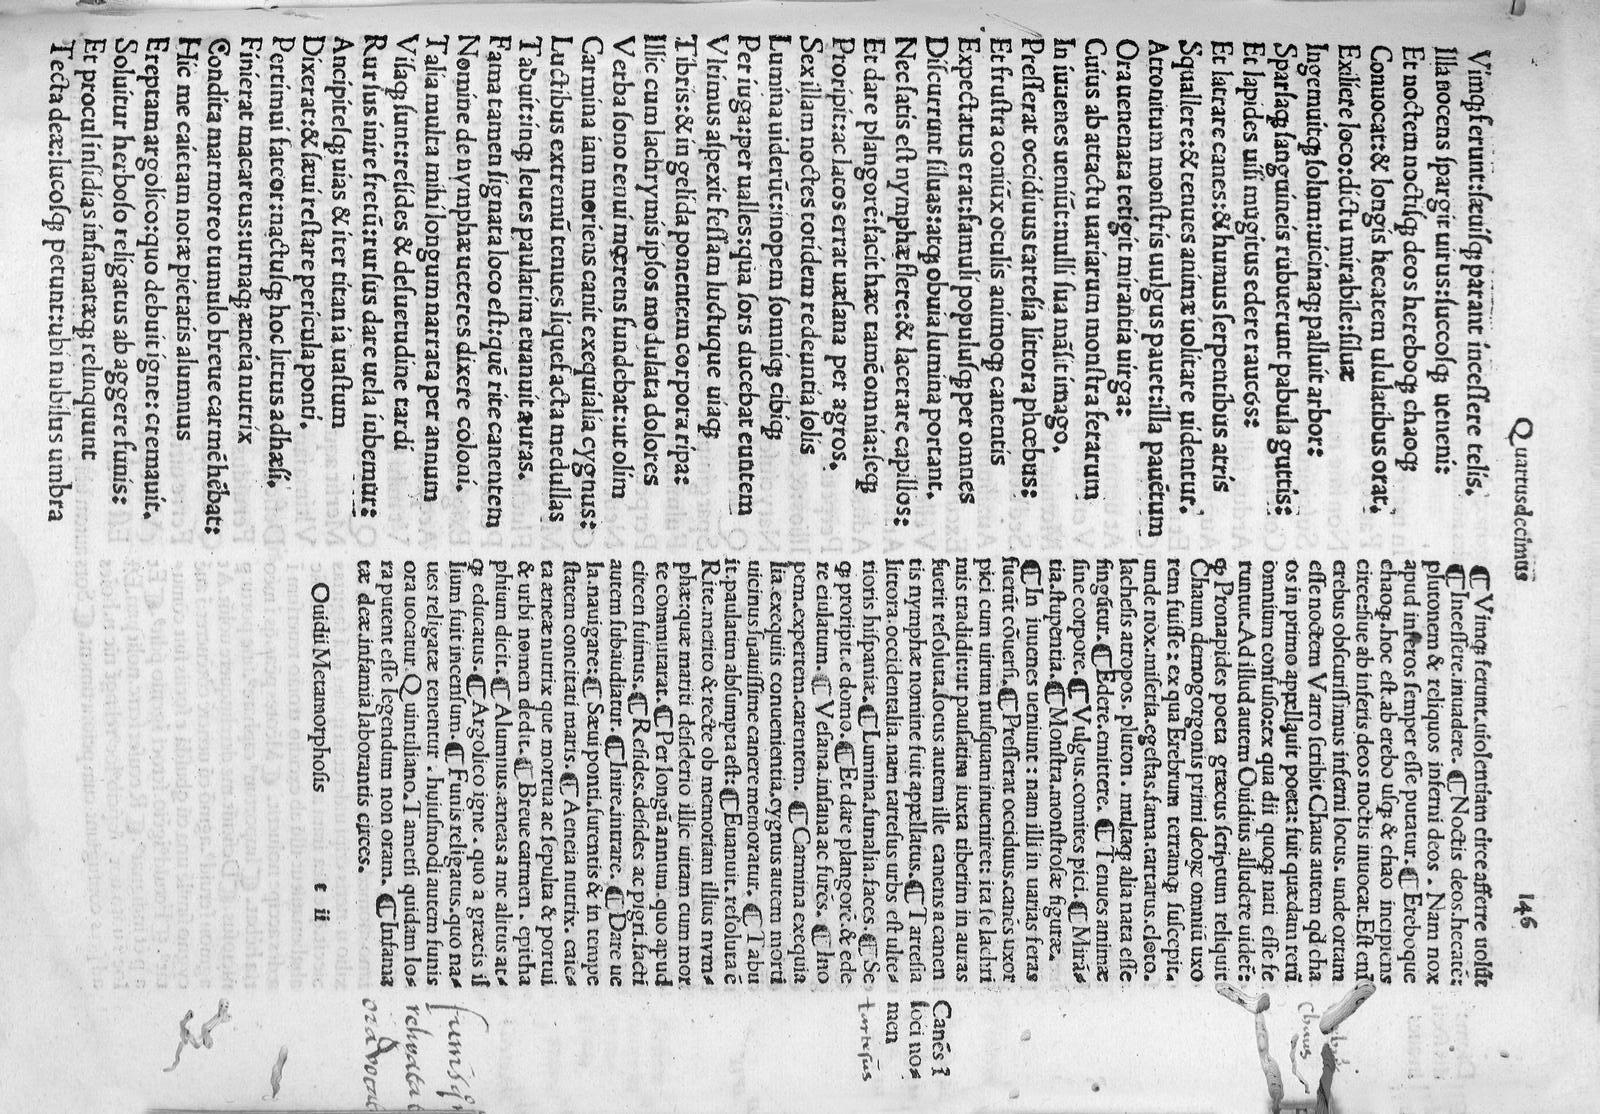 Quartusdecimus 146
Vimq; ferunt: sæuisq; parant incessere telis.
Illa nocens spargit uirus: succosq; ueneni:
Et noctem noctisq; deos hereboq; chaoq;
Conuocat: & longis hecatem ululatibus orat.
Exiliere loco: dictu mirabile: siluæ
Ingemuitq; solum: uicinaq; palluit arbor:
Sparsaq; sanguineis rubuerunt pabula guttis:
Et lapides uisi mūgitus edere raucos:
Et latrare canes: & humus serpentibus atris
Squallere: & tenues animæ uolitare uidentur.
Atronitum monstris uulgus pauet: illa pauētum
Ora uenenata tetigit mirantia uirga:
Cuius ab attactu uariarum monstra ferarum
In iuuenes ueniūt: nulli sua māsit imago.
Presserat occiduus tartesia littora phœbus:
Et frustra coniūx oculis animoq; canentis
Expectatus erat: famuli populusq; per omnes
Discurrunt siluas: atq; obuia lumina portant.
Nec satis est nymphæ flere: & lacerare capillos:
Et dare plangorē: facit hæc tamē omnia: seq;
Proripit: ac latos errat uæsana per agros.
Sex illam noctes totidem redeuntia solis
Lumina uiderūt: inopem somniq; cibiq;
Per iuga: per ualles: qua sors ducebat euntem
Vltimus aspexit fessam luctuque uiaq;
Tibris: & in gelida ponentem corpora ripa:
Illic cum lachrymis ipsos modulata dolores
Verba sono tenui mœrens fundebat: ut olim
Carmina iam moriens canit exequialia cygnus:
Luctibus extremū tenues liquefacta medullas
Tabuit: inq; leues paulatim euanuit auras.
Fama tamen signata loco est: quē rite canentem
Nomine de nymphæ ueteres dixere coloni.
Talia multa mihi longum narrata per annum
Visaq; sunt: resides & desuetudine tardi
Rursus inire fretū: rursus dare uela iubemur:
Ancipitesq; uias & iter titania uastum
Dixerat: & sæui restare pericula ponti.
Pertimui fateor: nactusq; hoc littus adhæsi.
Finierat macareus: urnaq; æneia nutrix
Condita marmoreo tumulo breue carmē hēbat:
Hic me caietam notæ pietatis alumnus
Ereptam argolico: quo debuit igne: cremauit.
Soluitur herboso religatus ab aggere funis:
Et procul insidias infamatæq; relinquunt
Tecta deæ: lucosq; petunt: ubi nubilus umbra
¶ Vimq; ferunt. uiolentiam circe afferre uolūt
¶ Incessere. inuadere. ¶ Noctis deos. hecatē:
plutonem & reliquos inferni deos. Nam nox
apud inferos semper esse putatur. ¶ Ereboque
chaoq;. hoc est. ab erebo usq; & chao incipiens
circe: siue ab inferis deos noctis inuocat. Est eni
erebus obscurissimus inferni locus. unde ortam
esse noctem Varro scribit Chaus autem qd cha
os in primo appellauit poeta: fuit quædam rerū
omnium confusio: ex qua dii quoq; nati esse fe
runtur. Ad illud autem Ouidius alludere uidet:
q; Pronapides poeta græcus scriptum reliquit
Chaum demogorgonis primi deorum omniū uxo
rem fuisse: ex qua Erebum terramq; suscepit.
unde nox. miseria. egestas. fama. tartarus. cloto.
lachesis atropos. pluton. multaq; alia nata esse
fingūtur. ¶ Edere. emittere. ¶ Tenues animæ
sine corpore. ¶ Vulgus. comites pici. ¶ Mirā⸗
tia. stupentia. ¶ Monstra. monstrosæ figuræ.
¶ In iuuenes ueniunt: nam illi in uarias feras
fuerūt cōuersi. ¶ Presserat occiduus. canēs uxor
pici cum uirum nusquam inueniret: ita se lachri
mis tradidit: ut paulatim iuxta tiberim in auras
fuerit resoluta. locus autem ille canens a canen
tis nymphæ nomine fuit appellatus. ¶ Tartesia
littora. occidentalia. nam tartesus urbs est ulte⸗
rioris hispaniæ. ¶ Lumina. funalia. faces. ¶ Se
q; proripit. e domo. ¶ Et dare plangorē. & ede
re eiulatum. ¶ Vesana. insana ac furēs. ¶ Ino
pem. expertem. carentem. ¶ Carmina exequia
lia. exequiis conuenientia. cygnus autem morti
uicinus suauissime canere memoratur. ¶ Tabu
it. paulatim absumpta est: ¶ Euanuit. resoluta ē
Rite. merito & recte ob memoriam illius nym⸗
phæ: quæ mariti desiderio illic uitam cum mor
te commutarat. ¶ Per longū annum. quo apud
circen fuimus. ¶ Resides. desides ac pigri. facti
autem subaudiatur. ¶ Inire. intrare. ¶ Dare ue
la. nauigare: ¶ Sæui ponti. furentis & in tempe
statem concitati maris. ¶ Aeneia nutrix. caieta
ta æneæ nutrix que mortua ac sepulta & portui
& urbi nomen dedit. ¶ Breue carmen. epitha
phium dicit. ¶ Alumnus. æneas a me altus at⸗
q; educatus. ¶ Argolico igne. quo a græcis il⸗
lium fuit incensum. ¶ Funis religatus. quo na⸗
ues religatæ tenentur. huiusmodi autem funis
ora uocatur. Quintiliano. Tametsi quidam lo⸗
ra putent esse legendum non oram. ¶ Infamatæ
tæ deæ. infamia laborantis circes.
Canēs ī
loci no⸗
men
tartesūs
chaus
ora uocat
Ouidii Metamorphosis e ii